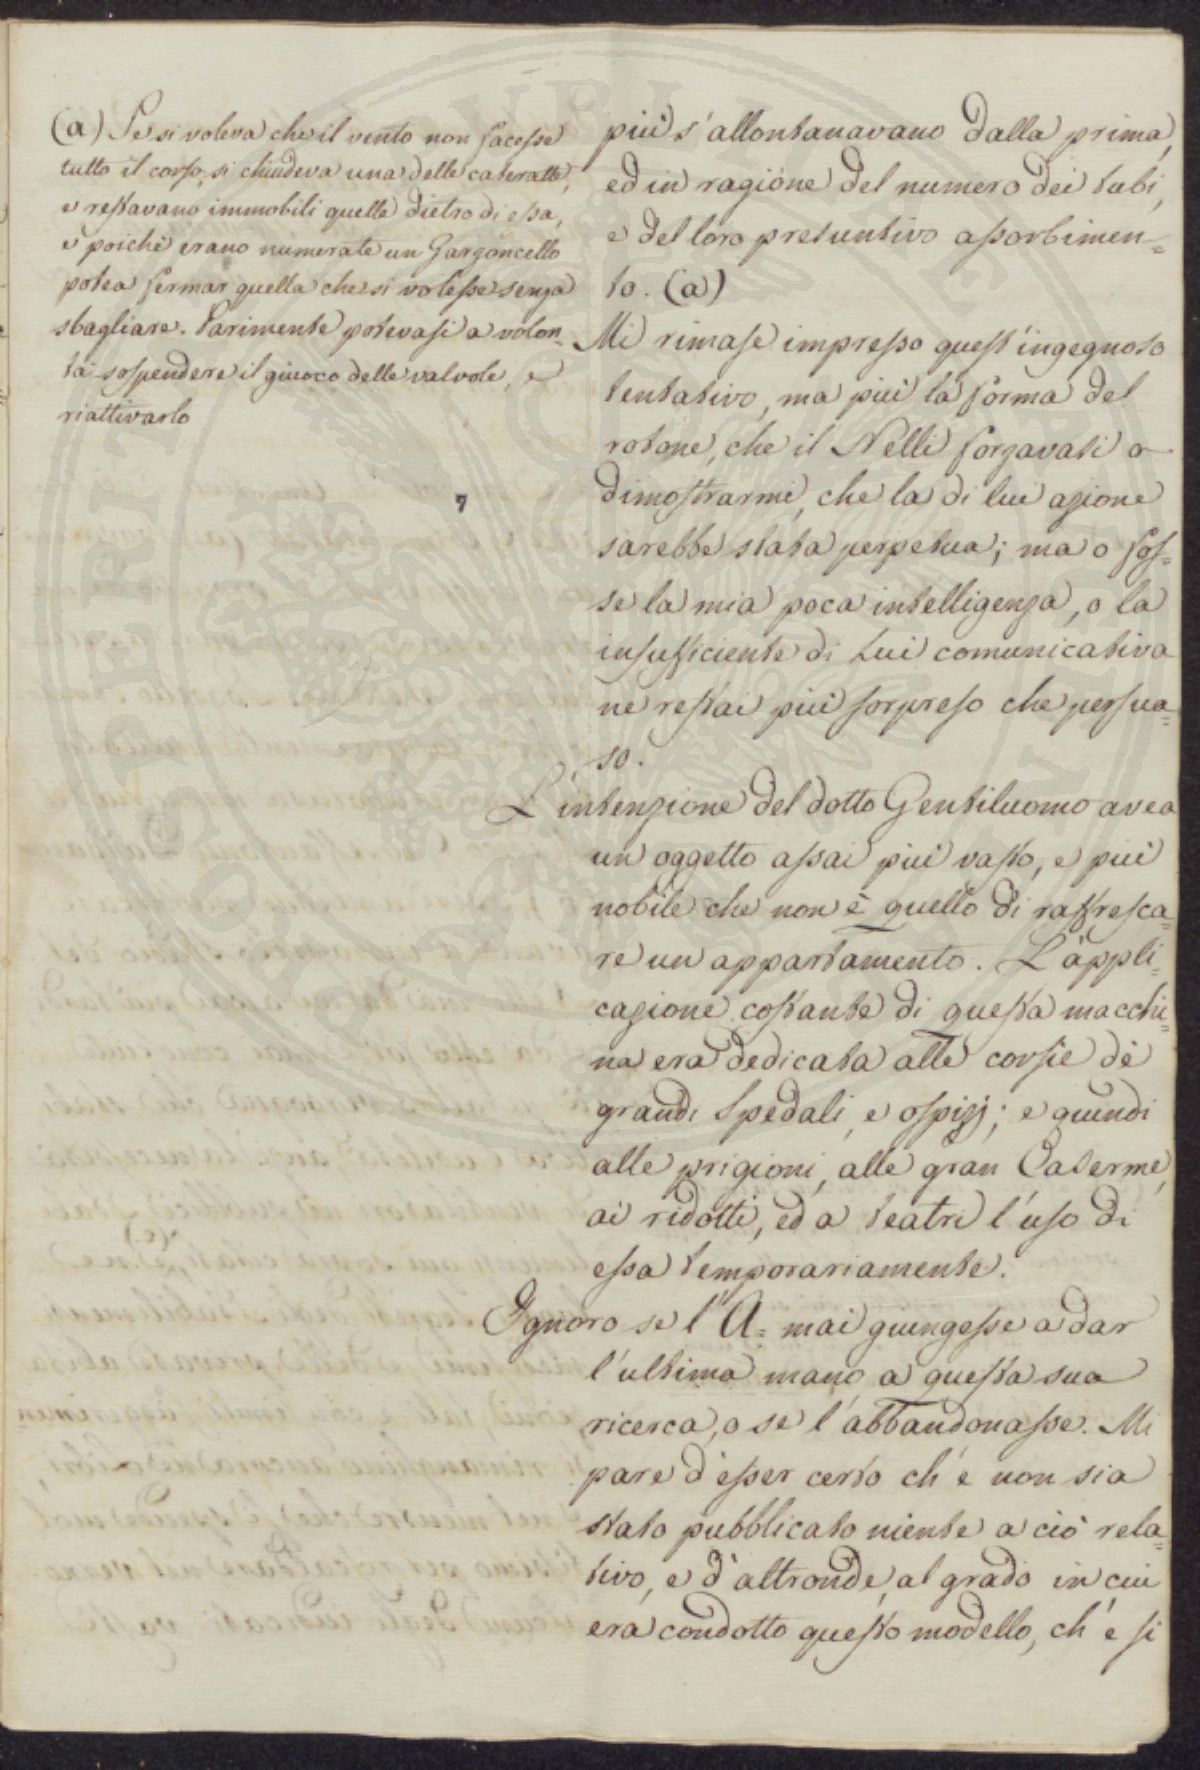 (a) Se si voleva che il vento non facesse
tutto il corso, si chiudeva una delle cateratte,
e restavano immobili quelle dietro di essa,
e poichè erano numerate un Garzoncello
potea fermar quella che si volesse senza
sbagliare. Parimente potevasi a volon-
tà sospendere il giuoco delle valvole, e
riattivarlo
più s'allontanavano dalla prima,
ed in ragione del numero dei tubi,
e del loro presuntivo assorbimen=
to. (a)
Mi rimase impresso quest'ingegnoso
tentativo, ma più la forma del
rotone, che il Nelli forzavasi a
dimostrarmi, che la di lui azione
sarebbe stata perpetua; ma o fos=
se la mia poca intelligenza, o la
insufficiente di Lui comunicativa
ne restai più sorpreso che persua=
so.
L'intenzione del dotto Gentiluomo avea
un oggetto assai più vasto, e più
nobile che non è quello di raffresca=
re un appartamento. L'appli=
cazione costante di questa macchi=
na era dedicata alle corsie de
grandi Spedali, e ospizj; e quindi
alle prigioni, alle gran Caserme,
ai ridotti, ed a teatri l'uso di
essa temporariamente.
Ignoro se l'A= mai giungesse a dar
l'ultima mano a questa sua
ricerca, o se l'abbandonasse. Mi
pare d'esser certo ch'e non sia
stato pubblicato niente a ciò rela=
tivo, e d'altronde, al grado in cui
era condotto questo modello, ch'e si